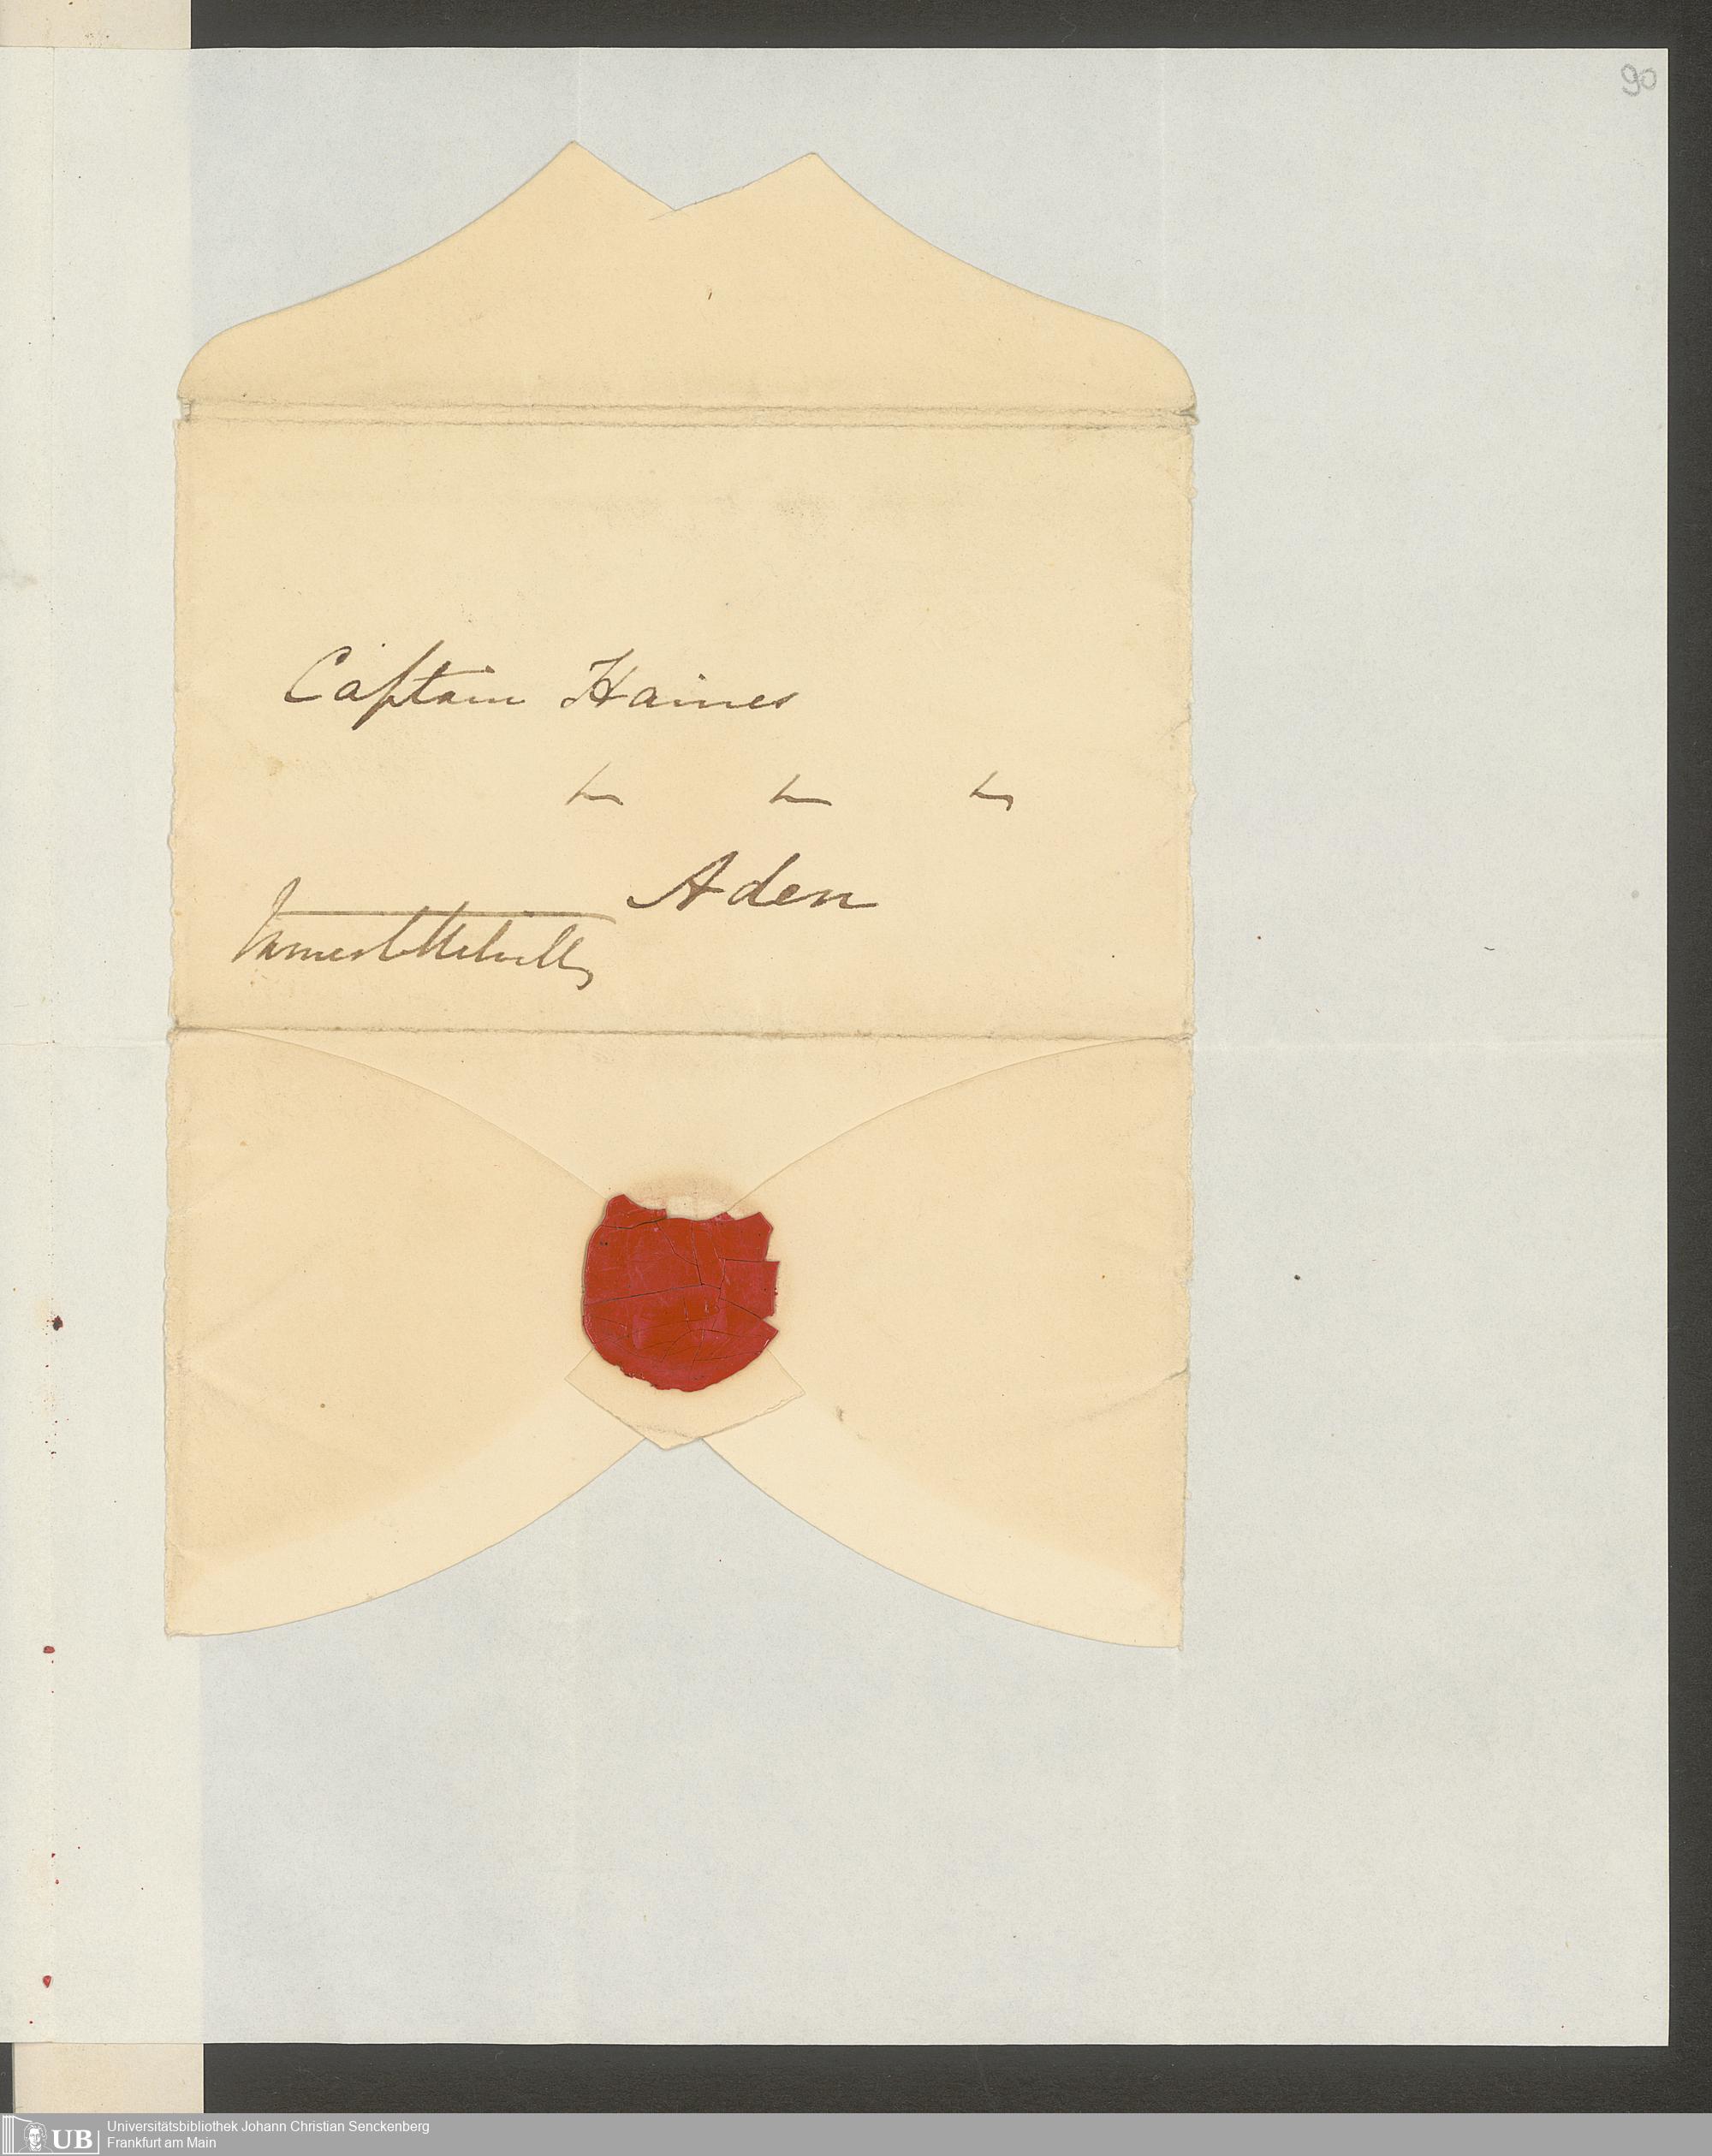 90
Captain Haines
Aden
James C Melvill
UB
Universitätsbibliothek Johann Christian Senckenberg
Frankfurt am Main